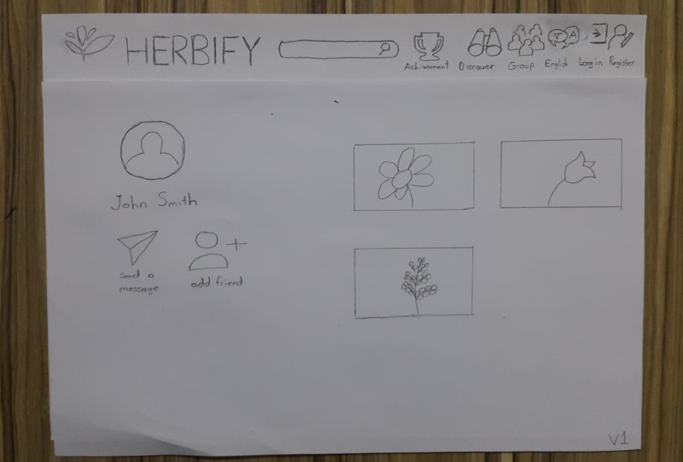 HERBIFY
Achievement Discover Group English Login Register
John Smith
send a
message
add friend
V1